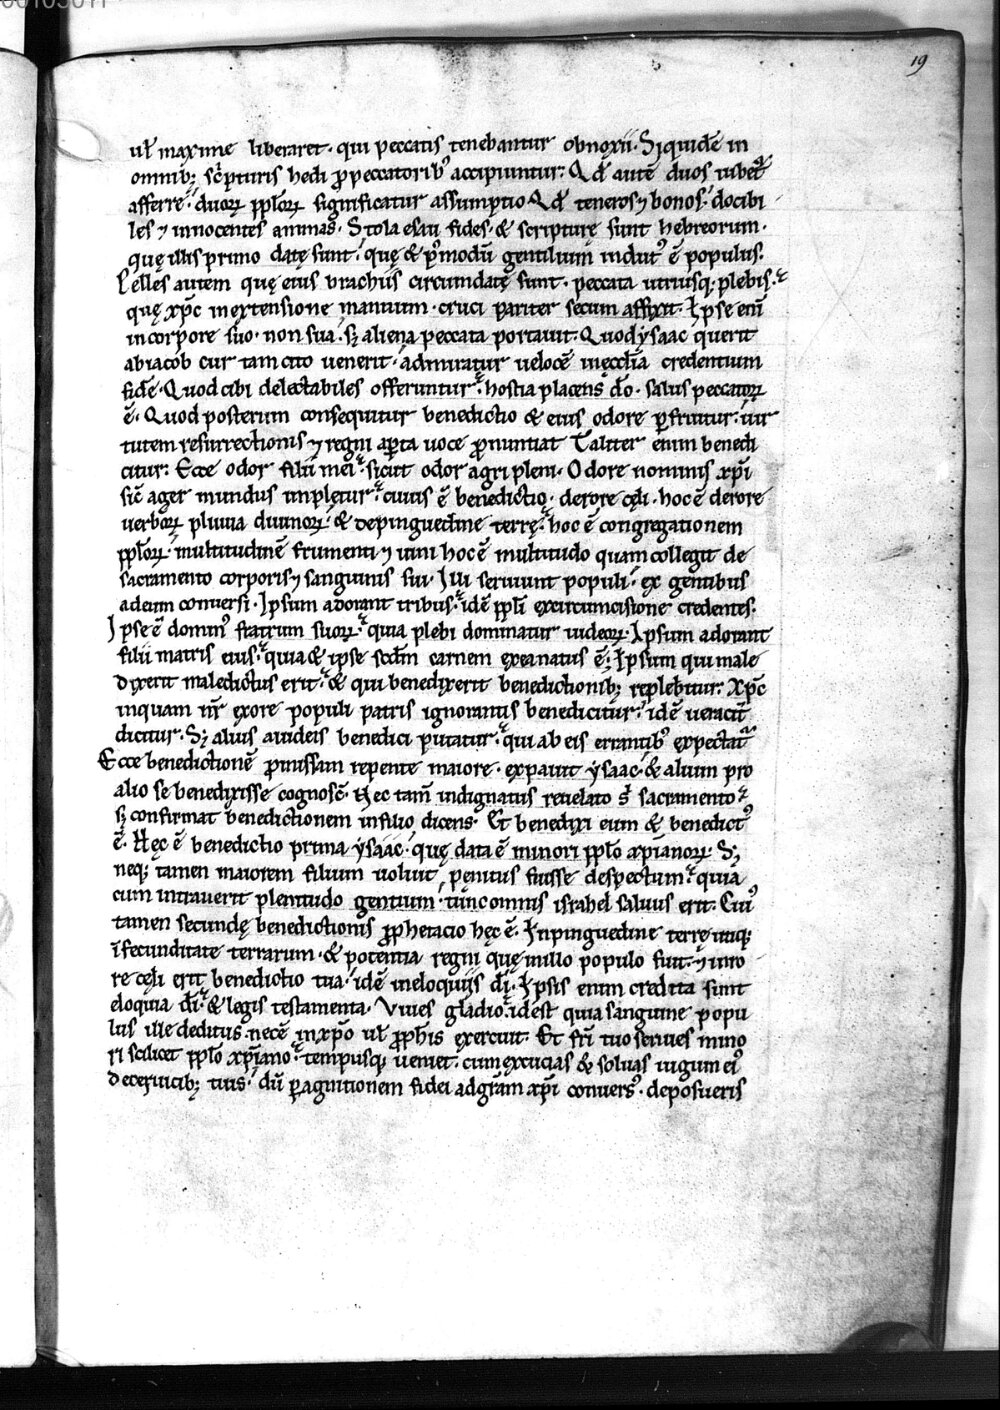 19
ul̄ maxime liberaret. qui peccatis tenebantur obnoxii. Siquidē in
omnib; sc̄pturis hedi ꝓpeccatorib' accipiuntur. Qd̄ autē duos iubet᷑
afferre. duoꝝ pp̄loꝝ significatur assumptio Qd̄ teneros ⁊ bonos. docibi
les ⁊ innocentes animas. Stola esau fides. & scripturę sunt hebreorum.
quę illis primo datę sunt. quę & p̄modū gentilium indut' ē populus.
Pelles autem quę eius brachiis circumdatę sunt. peccata utriusq; plebis. ē
quę xp̄c inextensione manuum. cruci pariter secum affixit. Ipse enī
incorpore suo. non sua. s; aliena peccata portauit. Quod ysaac querit
abiacob cur tam cito uenerit. admiratur uelocē inęccl̄ia credentium
fidē. Quod cibi delectabiles offeruntur. hostia placens dō. salus peccatoꝝ
ē. Quod posterum consequitur benedictio & eius odore ꝑfruitur. uir
tutem resurrectionis ⁊ regni aꝑta uoce ꝓnuntiat Taliter enim benedi
citur. Ecce odor filii mei. sicut odor agri pleni. Odore nominis xp̄i
sic̄ ager mundus implętur. cuius ē benedictio. derore cęli. hoc ē derore
uerboꝝ pluuia diuinoꝝ. & depinguedine terrę. hoc ē congregationem
pp̄loꝝ. multitudinē frumenti ⁊ uini hoc ē multitudo quam collegit de
sacramento corporis ⁊ sanguinis sui. Illi seruiunt populi. ex gentibus
adeum conuersi. Ipsum adorant tribus. idē pp̄li excircumcisione credentes.
Ipse ē domin' fratrum suoꝝ. quia plebi dominatur iudeoꝝ. Ipsum adorant
filii matris eius. quia & ipse scd̄m carnem exeanatus ē; Ipsum qui male
dixerit maledictus erit. & qui benedixerit benedictionib; replebitur. Xp̄c
inquam nr̄ exore populi patris ignorantis benedicitur. idē ueracit̄
dicitur. S; alius auideis benedici putatur. qui ab eis errantib' expectat᷑
Ecce benedictionē ꝓmissam repente maiore. expauit ysaac. & alium pro
alio se benedixisse cognosc̄. Nec tam̄ indignatus reuelato s sacramento
s; confirmat benedictionem infilio dicens. Et benedixi eum & benedict'
ē. Hęc ē benedictio prima ysaac. quę data ē minori pp̄lo xp̄ianoꝝ. S;
neq; tamen maiorem filium uoluit penitus fuisse despectum. quia
cum intrauerit plenitudo gentium. tunc omnis israhel saluus erit. Cui'
tamen secundę benedictionis ꝓphetacio hęc ē. Inpinguedine terrę itaq;
ī fecunditate terrarum. & potentia regni quę inillo populo fuit. ⁊ inro
re cęli erit benedictio tua. idē ineloquiis dī. Ipsis enim credita sunt
eloquia dī. & legis testamenta. Viues gladio. idest quia sanguine popu
lus ille deditus. necē inxp̄o ul̄ ꝓph̄is exercuit. Et frī tuo seruies mino
ri scilicet pp̄lo xp̄iano. tempusq; ueniet. cum excucias & soluas iugum ei'
deceruicib; tuis. dū ꝑagnitionem fidei adgrām xp̄i conuers'. deposueris